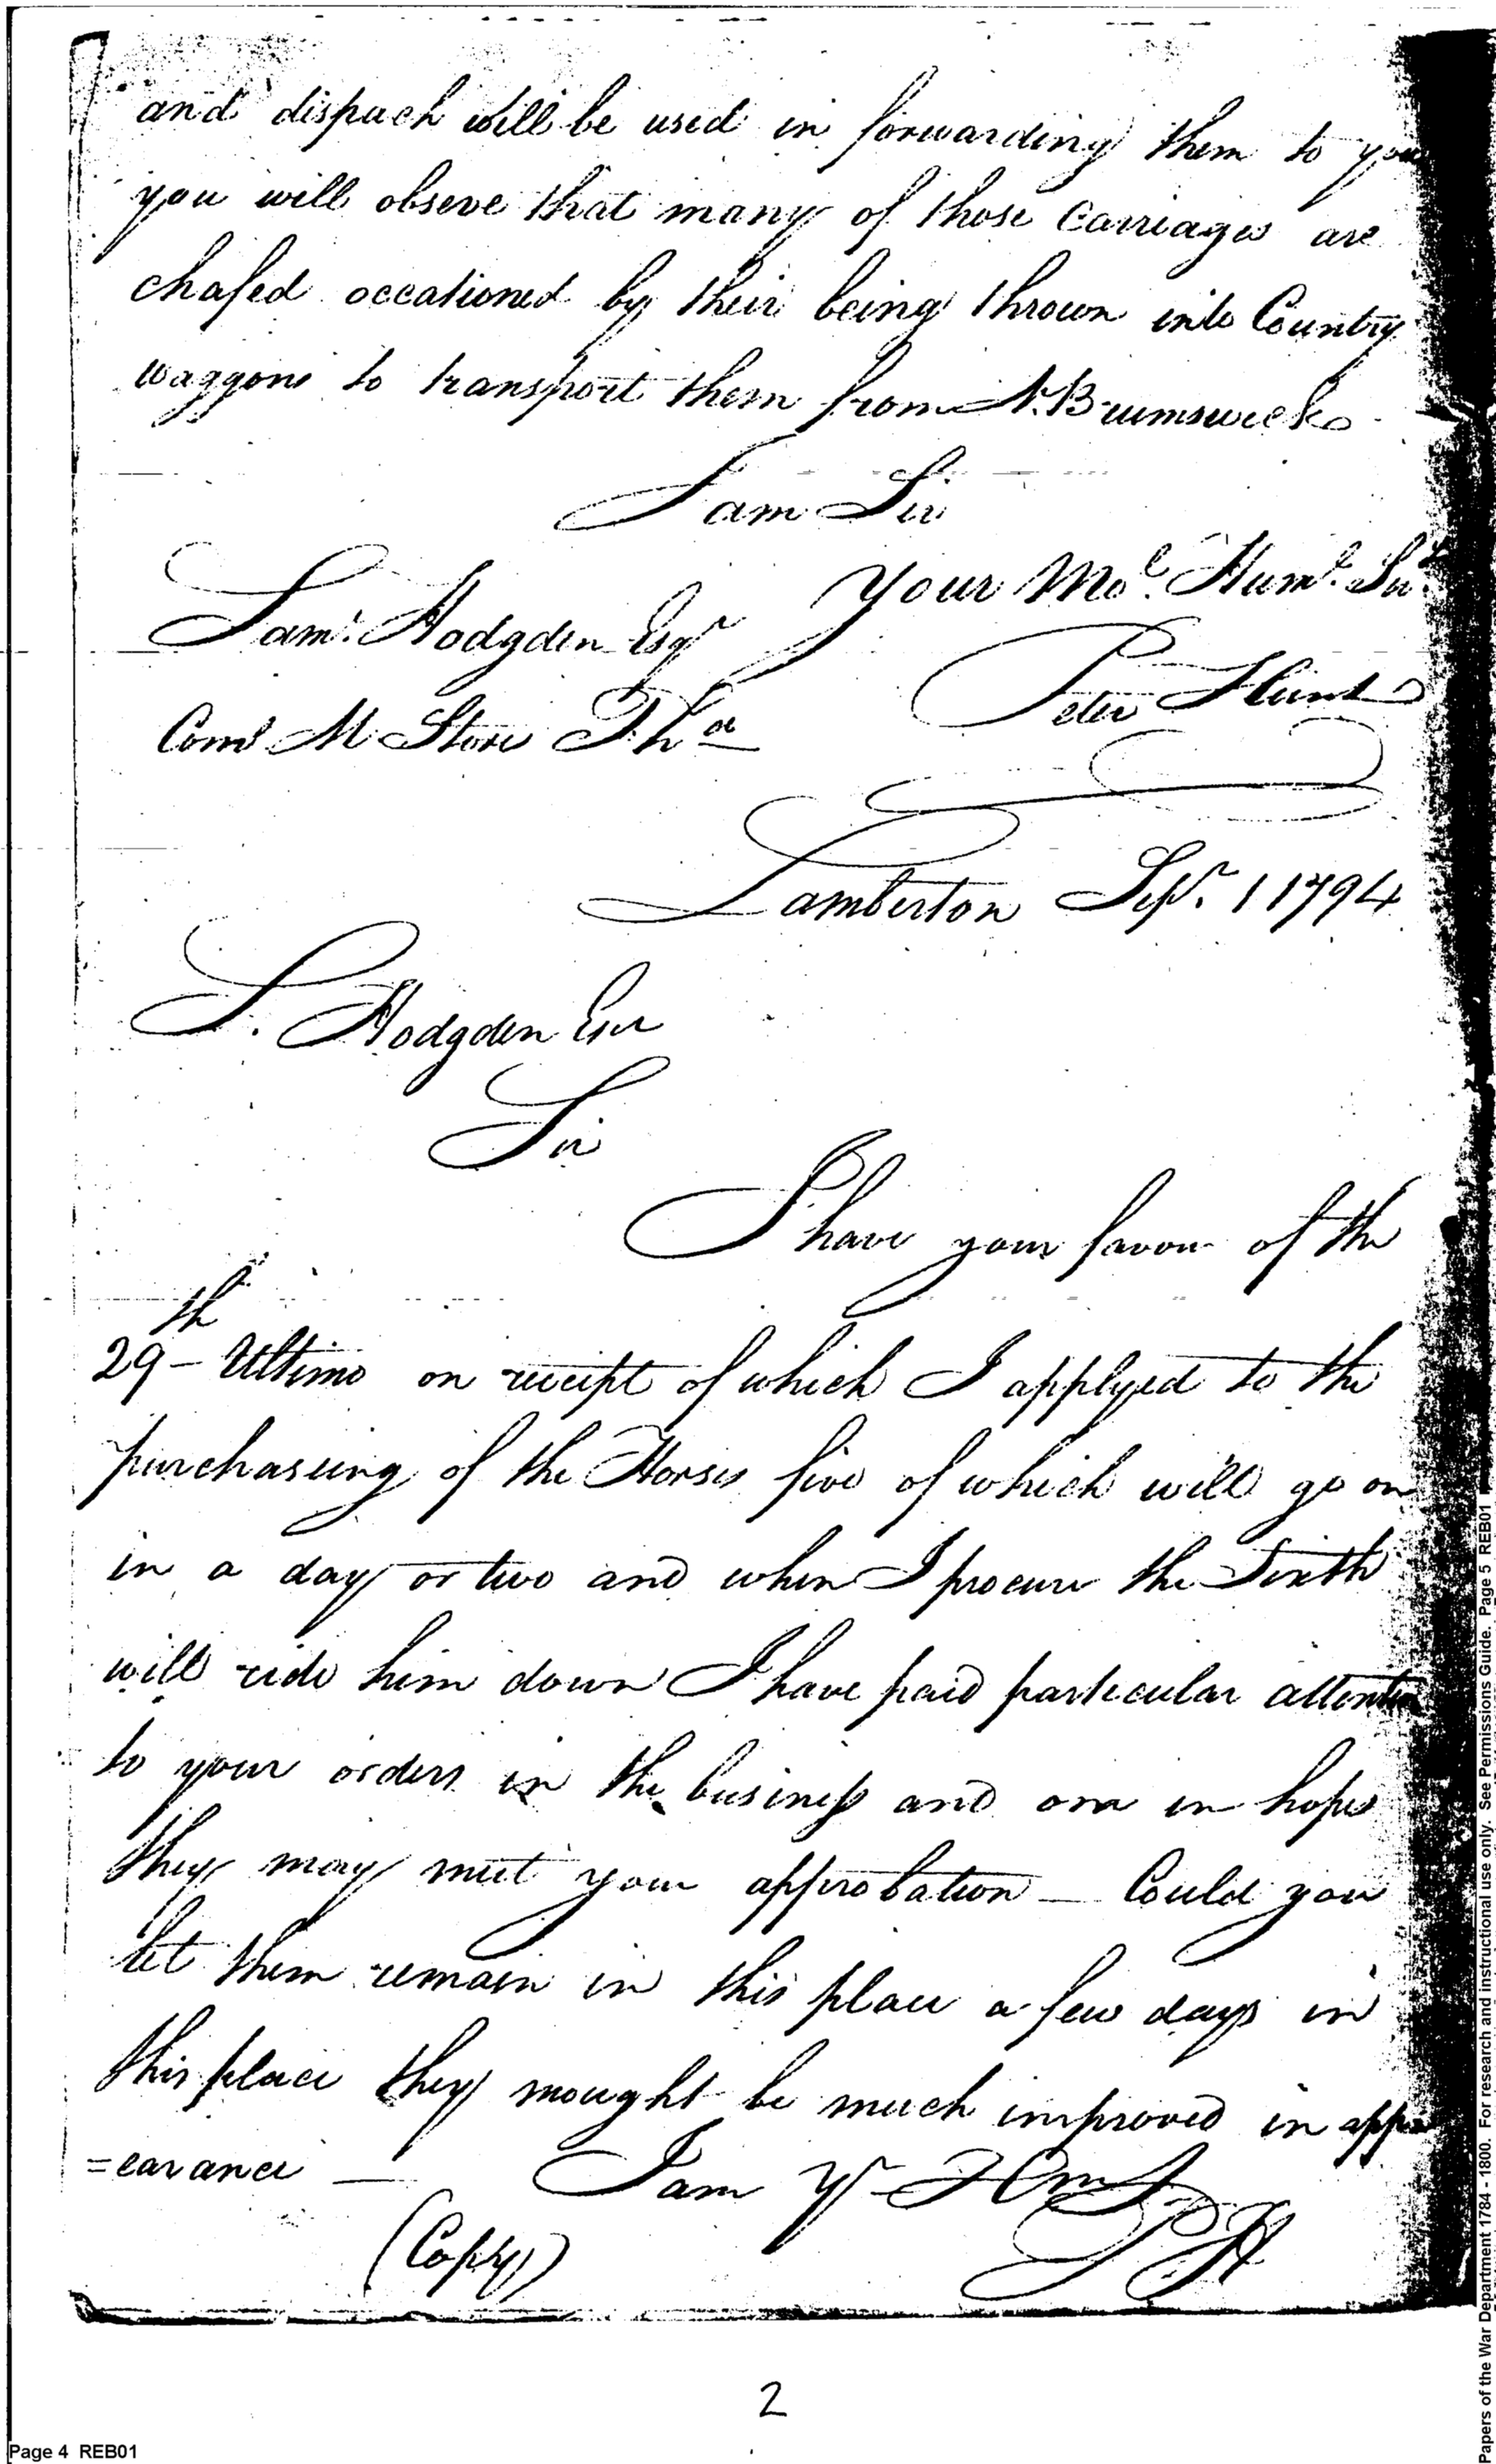 and dispach will be used in forwarding them to you
you will obseve that many of those Carriages are
chafed occationed by their being thrown into Country
waggons to transport them from N. Brumswick
I am Sir
Your Mo.t Hum.e Sr.t
Sam.l Hodgden Esq.r
Peter Hunt
Com.y M Store Ph.a
Lamberton Sep.r 1 1794
S. Hodgden Esqr
Sir
I have your favour of the
29th Ultimo on receipt of which I applyed to the
purchaseing of the Horses five of which will go on
in a day or two and when I procure the Sixth
will ride him down I have paid particular attention
to your orders in the business and am in hopes
they may meet your approbation — Could you
let them remain in this place a few days in
this place they mought be much improved in appe
=earance — I am Yr
(Copy) PH
2
Page 4 REB01
Papers of the War Department 1784 - 1800. For research and instructional use only. See Permissions Guide. Page 5 REB01